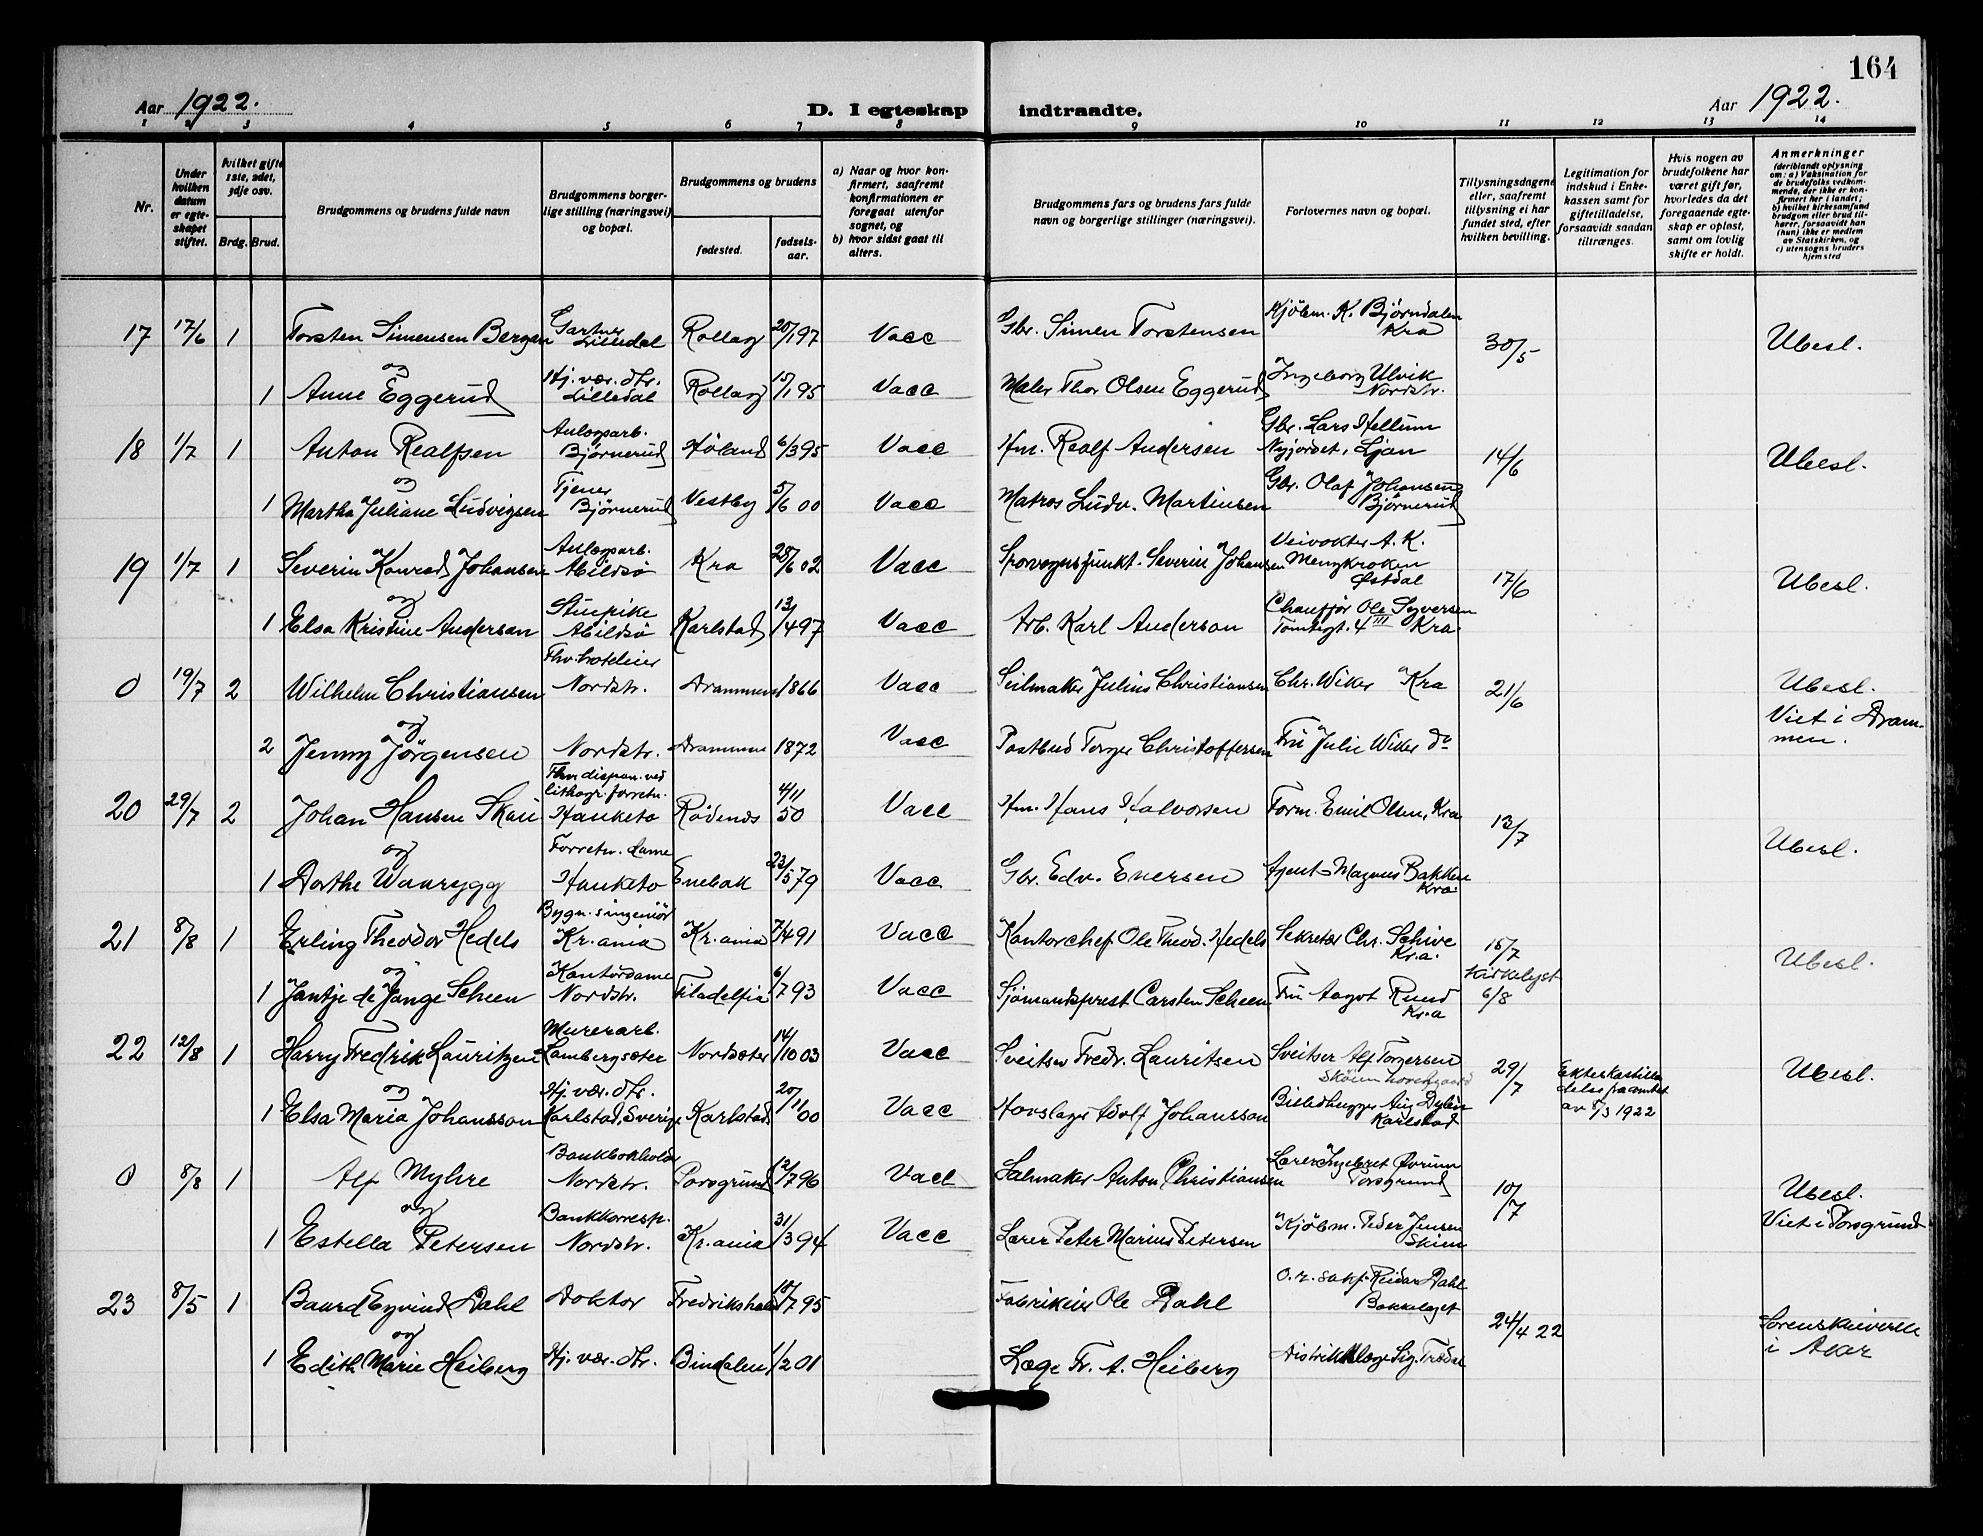 164
Aar 1922.
D. I egteskap indtraadte.
Aar 1922.
1 2 3 4 5 6 7 8 9 10 11 12 13 14
Nr.
Under hvilken datum er egteskapet stiftet.
Hvilket gifte 1ste, 2det, 3dje osv.
Brdg. Brud.
Brudgommens og brudens fulde navn
Brudgommens borgerlige stilling (næringsvei) og bopæl.
Brudgommens og brudens
fødested.
fødselsaar.
a) Naar og hvor konfirmert, saafremt konfirmationen er foregaat utenfor sognet, og
b) hvor sidst gaat til alters.
Brudgommens fars og brudens fars fulde navn og borgerlige stillinger (næringsvei).
Forlovernes navn og bopæl.
Tillysningsdagene eller, saafremt tillysning ei har fundet sted, efter hvilken bevilling.
Legitimation for indskud i Enkekassen samt for giftetilladelse, forsaavidt saadan tiltrænges.
Hvis nogen av brudefolkene har været gift før, hvorledes da det foregaaende egteskap er opløst, samt om lovlig skifte er holdt.
Anmerkninger
(deriblandt oplysning om: a) Vaksination for de brudefolks vedkommende, der ikke er konfirmert her i landet; b) hvilket kirkesamfund brudgom eller brud tilhører, forsaavidt han (hun) ikke er medlem av Statskirken, og c) utensogns bruders hjemsted
17 17/6 1 Torsten Simensen Bergan Gartner Lilledal Rollag 20/1 97 Vacc Gbr. Simen Torstensen Kjöbm. K. Björndalen Kra 30/5 Ubesl.
og
1 Anne Eggerud Hj. vær. dtr. Lilledal Rollag 15/1 95 Vacc Maler Thor Olsen Eggerud Ingeborg Ulvik Nordstr.
18 1/7 1 Anton Realfsen Anlægsarb. Bjørnerud Høland 6/3 95 Vacc Hm. Realf Andersen Gbr. Lars Hellum Nyjordet, Ljan 14/6 Ubesl.
og
1 Martha Juliane Ludvigsen Tjener Bjørnerud Vestby 5/6 00 Vacc Matros Ludv. Martinsen Gbr. Olaf Johansen Bjørnerud
19 1/7 1 Severin Konrad Johansen Anlægsarb. Abildsö Kra 28/6 02 Vacc Sporvognsfunkt. Severin Johansen Veivokter A. K. Mengkroken Østdal 17/6 Ubesl.
og
1 Elsa Kristine Anderson Stuepike Abildsö Karlstad 13/4 97 Vacc Arb. Karl Anderson Chauffør Ole Syversen Tomtegt. 4 III Kra.
0 19/7 2 Wilhelm Christiansen Fhv. hoteleier Nordstr. Drammen 1866 Vacc Seilmaker Julius Christiansen Chr. Wiker Kra 21/6 Ubesl. Viet i Drammen.
og
2 Jenny Jörgensen Nordstr. Drammen 1872 Vacc Postbud Torger Christoffersen Fru Julie Wiker do
20 29/7 2 Johan Hansen Skau Fhv. dispon. ved lithogr. forretn. Hauketo Rødenes 4/11 50 Vacc Hm. Hans Halvorsen Form. Emil Olsen, Kra 13/7 Ubesl.
og
1 Dorthe Waarygg Forretn. dame Hauketo Enebak 23/5 79 Vacc Gbr. Edv. Enersen Agent Magnus Bakken Kra.
21 8/8 1 Erling Theodor Hedels Bygn.singeniör Kr.ania Kr.ania 7/4 91 Vacc Kontorchef Ole Theod. Hedels Sekretær Chr. Schive Kr.a. 15/7 Kirkelyst 6/8 Ubesl.
og
1 Jantje de Jonge Scheen Kontordame Nordstr. Filadelfia 6/7 93 Vacc Sjömandsprest Carsten Scheen Fru Aagot Ruud Kr.a
22 12/8 1 Harry Fredrik Lauritzen Murerarb. Lambergsæter Nordsæter 14/10 03 Vacc Sveitser Fredr. Lauritsen Sveitser Alf Torgersen Skøien hovedgaard 29/7 Ubesl.
og
1 Elsa Maria Johansson Hj. vær. dtr. Karlstad, Sverige Karlstad 20/11 00 Vacc Hovslager Adolf Johansson Billedhugger Aug Dylén Karlstad
Ekteskastilladelse fra amtet av 8/3 1922
0 8/8 1 Alf Myhre Bankbokholder Nordstr. Porsgrund 12/7 96 Vacc Salmaker Anton Christiansen Lærer Ingebret Ørum Porsgrund 10/7 Ubesl. Viet i Porsgrund
og
1 Estella Petersen Bankkorresp. Nordstr. Kr.ania 31/3 94 Vacc Lærer Peter Marius Petersen Kjöbm. Peder Jensen Skien
23 8/5 1 Baard Eyvind Dahl Doktor Fredrikshald 18/7 95 Fabrikeier Ole Dahl O.r. sakf. Reidar Dahl Bækkelaget 24/4 22 Sorenskriveren i Aker
og
1 Edith Marie Heiberg Hj. vær. dtr. Bindalen 1/2 01 Læge Fr. A. Heiberg Distriktslæge Sig.